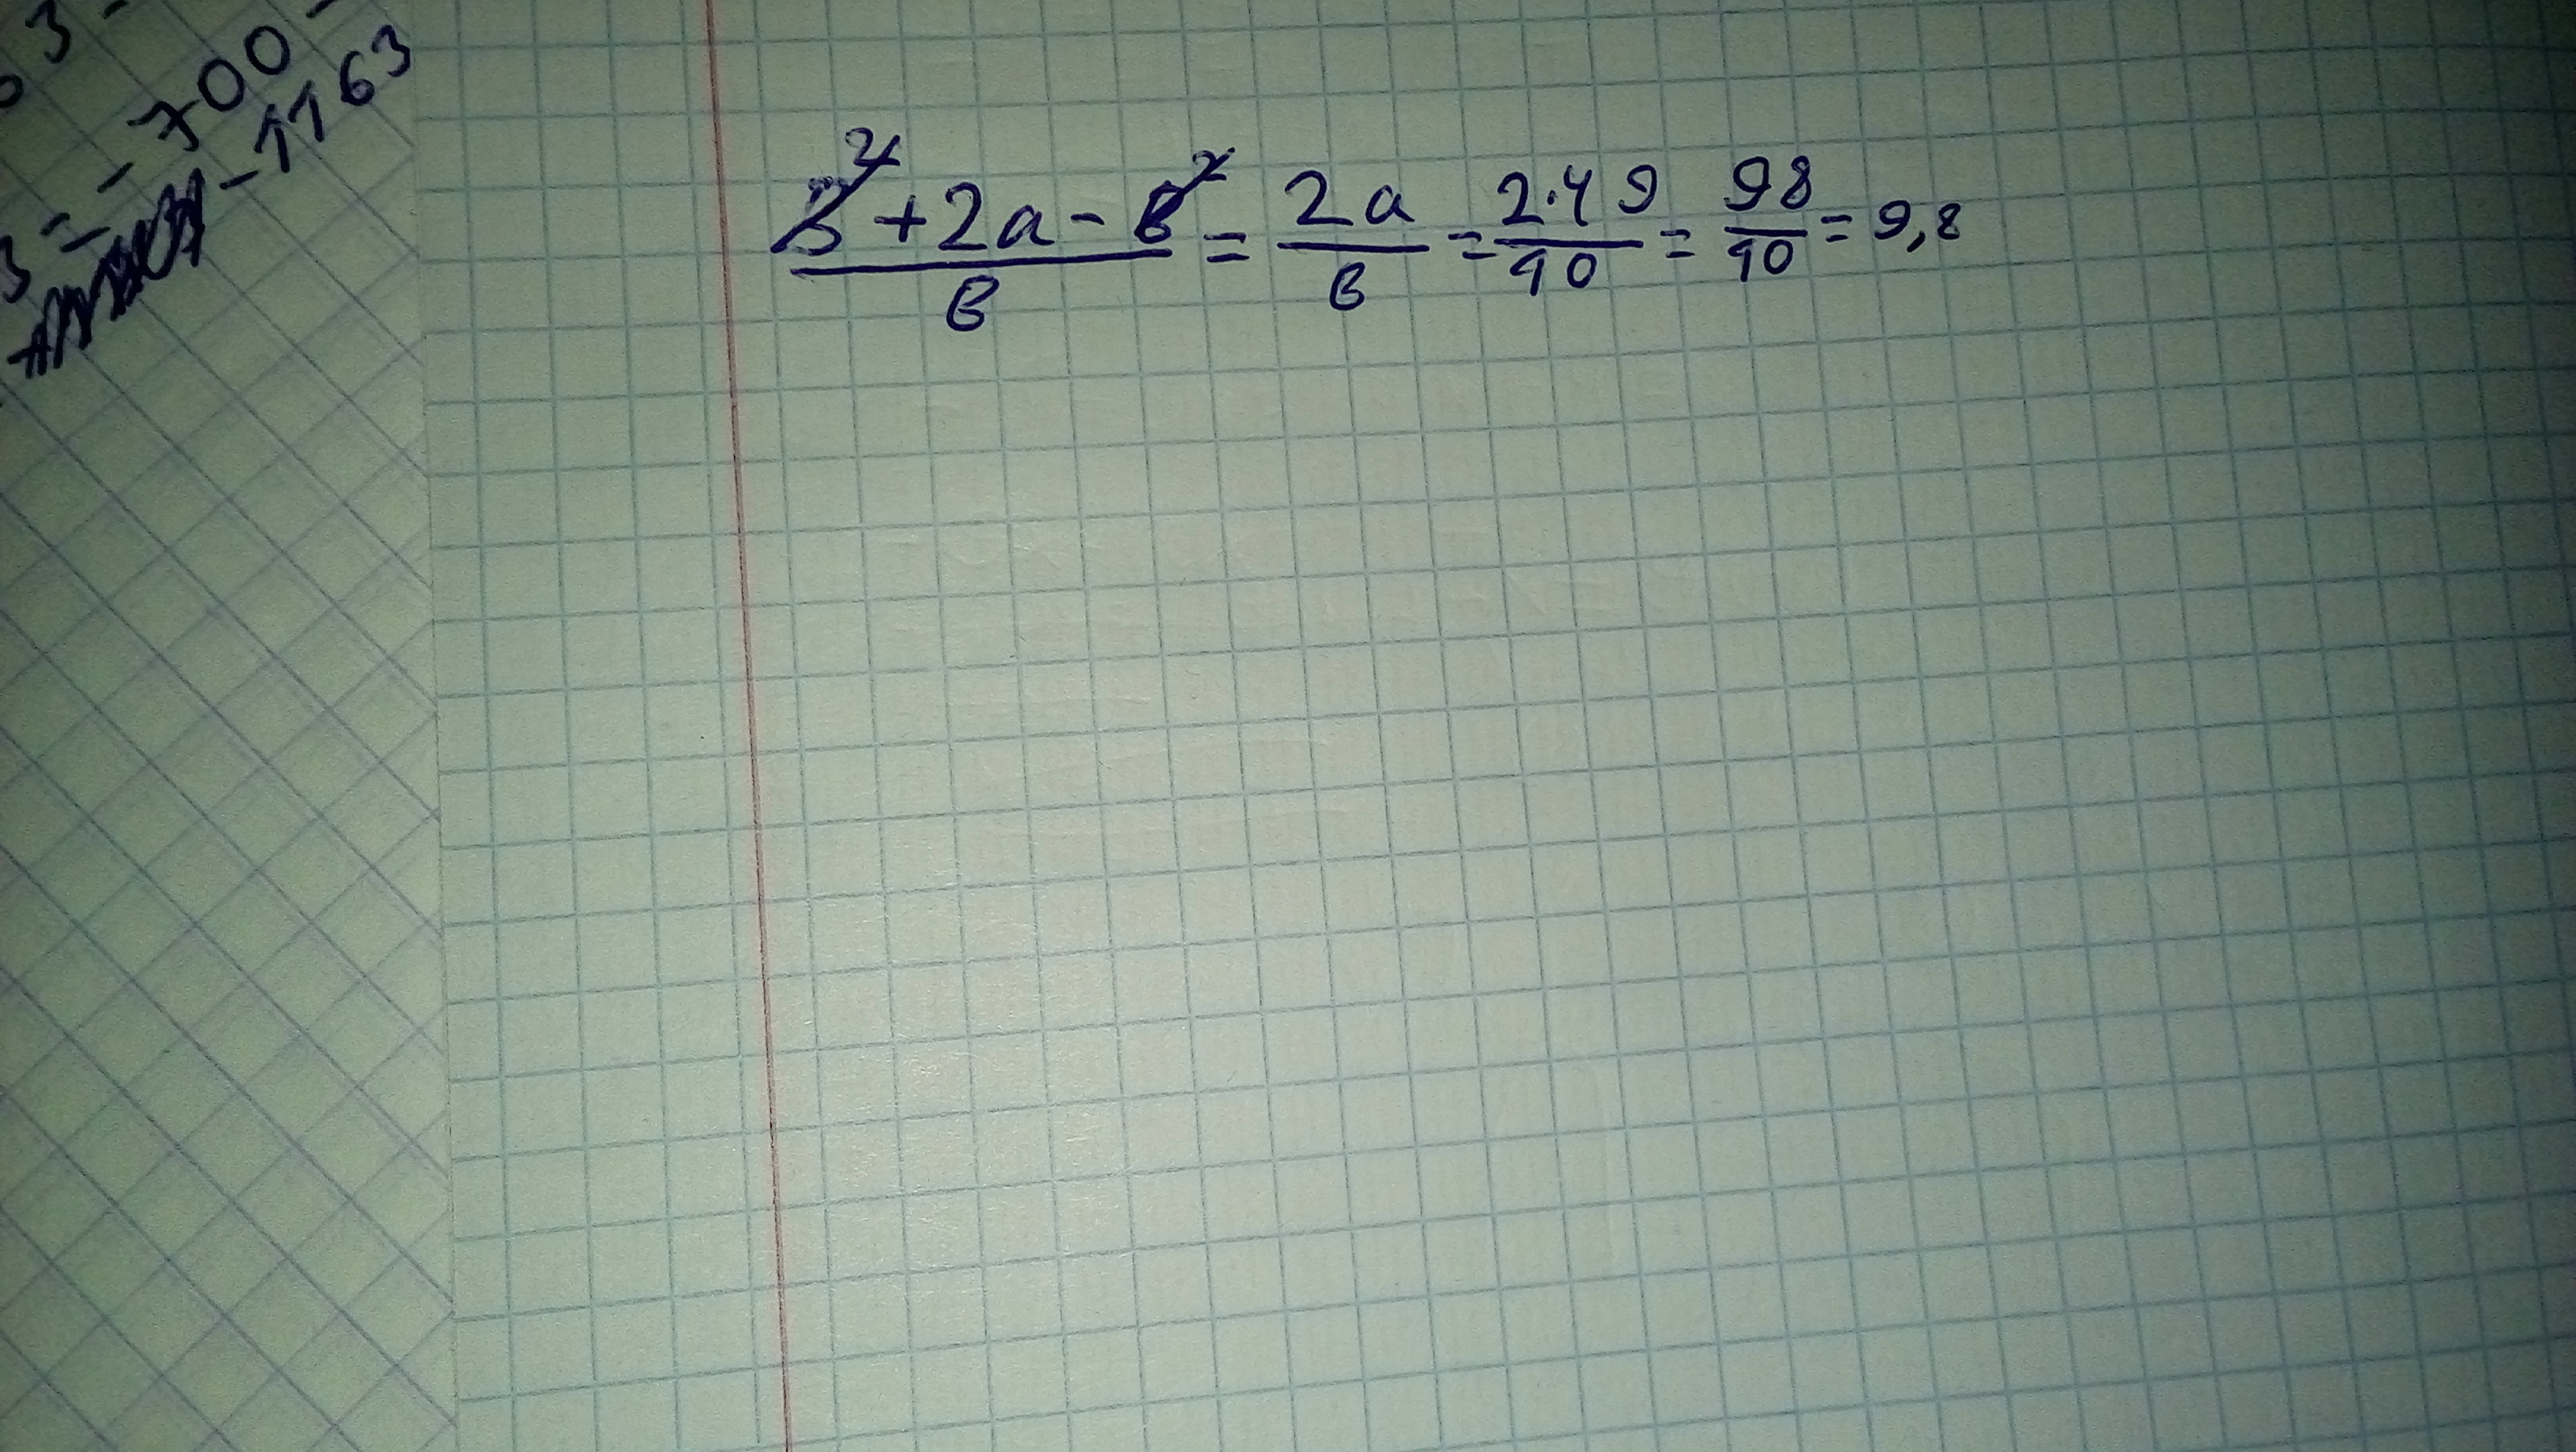 3 -
- 700 -
3 = - -1163
(в² + 2а - в²)/в = 2а/в = 2·49/10 = 98/10 = 9,8